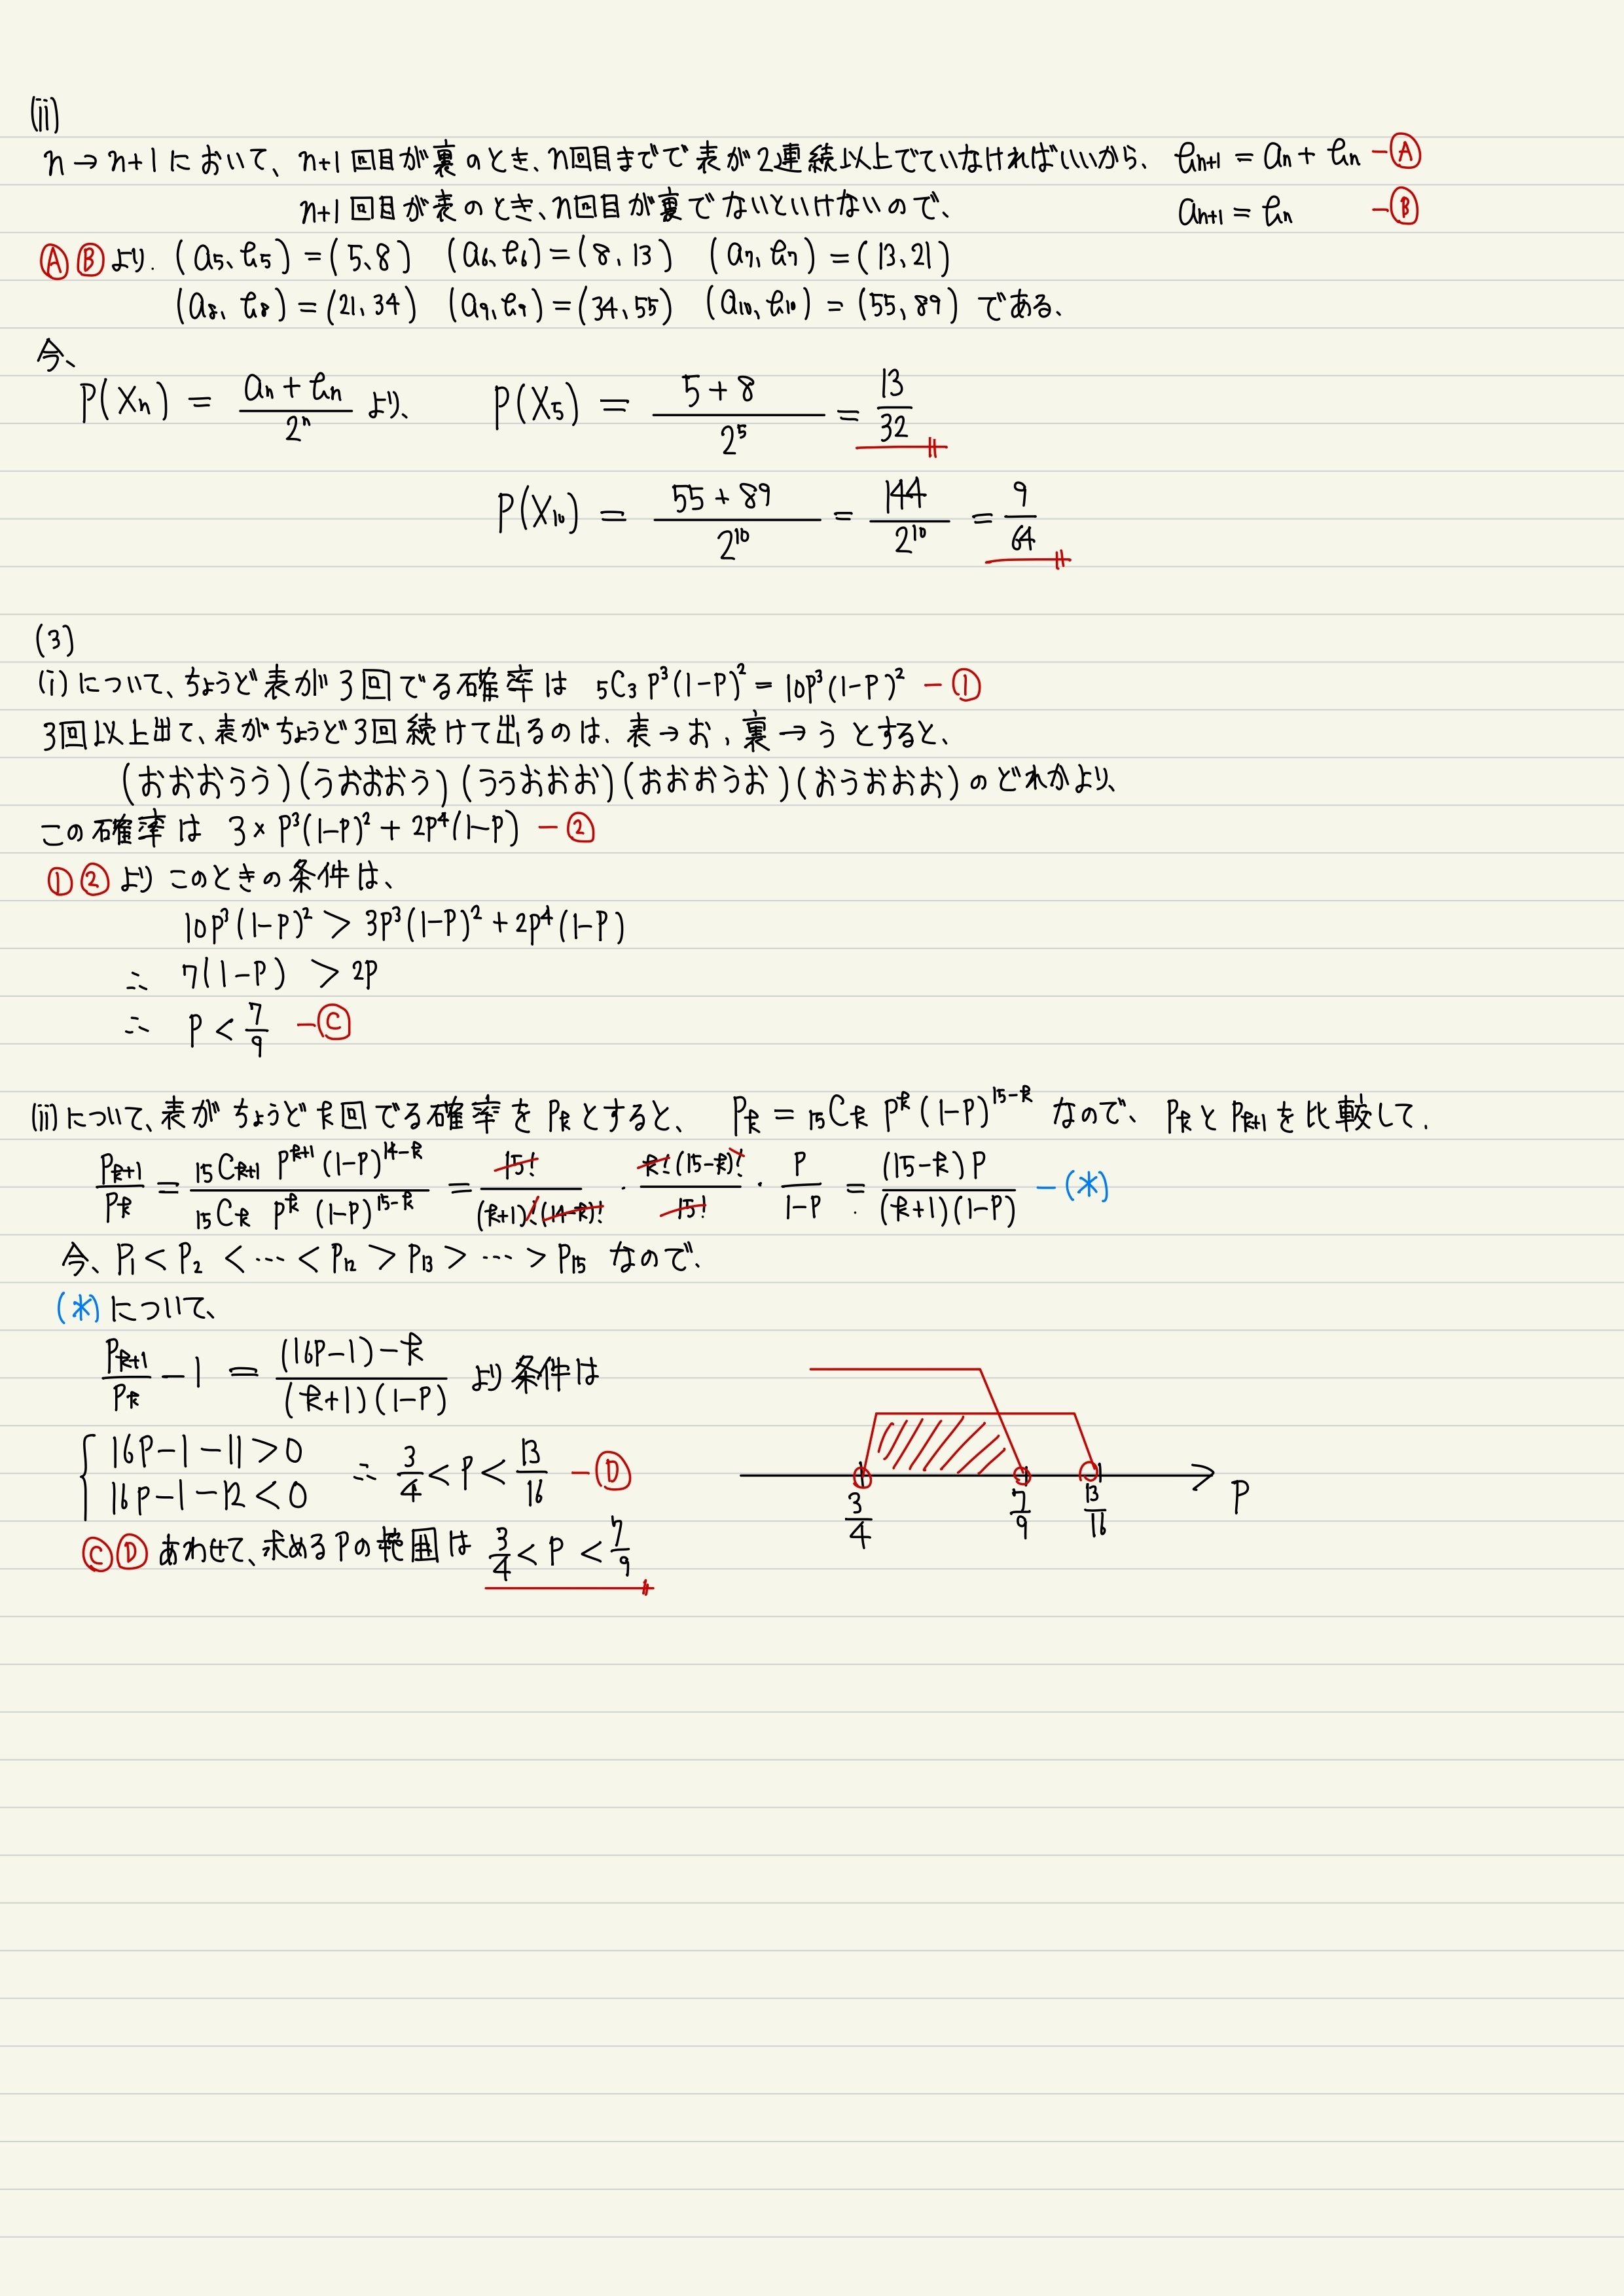 (ii)
n → n+1 において、n+1 回目が裏のとき、n回目までで表が2連続以上でていなければいいから、 bn+1 = an + bn −Ⓐ
n+1 回目が表のとき、n回目が裏でないといけないので、 an+1 = bn −Ⓑ
ⒶⒷより. (a5、b5) = (5、8) (a6、b6) = (8, 13) (a7, b7) = (13, 21)
(a8, b8) = (21, 34) (a9, b9) = (34, 55) (a10, b10) = (55, 89) である、
今、
P(Xn) = (an + bn)/2^n より、 P(X5) = (5 + 8)/2^5 = 13/32
P(X10) = (55 + 89)/2^10 = 144/2^10 = 9/64
(3)
(i) について、ちょうど表が3回でる確率は 5C3 p^3(1−p)^2 = 10p^3(1−p)^2 −①
3回以上出て、表がちょうど3回続けて出るのは、表→お, 裏→う とすると、
(おおおうう)(うおおおう)(ううおおお)(おおおうお)(おうおおお) のどれかより、
この確率は 3× p^3(1−p)^2 + 2p^4(1−p) −②
①②より このときの条件は、
10p^3(1−p)^2 > 3p^3(1−p)^2 + 2p^4(1−p)
∴ 7(1−p) > 2p
∴ p < 7/9 −Ⓒ
(ii) について、表がちょうどk回でる確率を Pk とすると、 Pk = 15Ck p^k (1−p)^15−k なので、 Pk と Pk+1 を比較して.
Pk+1/Pk = 15Ck+1 p^k+1 (1−p)^14−k / 15Ck p^k (1−p)^15−k = 15!/(k+1)!(14−k)! · k!(15−k)!/15! · p/1−p = (15−k)p/(k+1)(1−p) −(*)
今、P1 < P2 < … < P12 > P13 > … > P15 なので、
(*) について、
Pk+1/Pk − 1 = (16p−1)−k/(k+1)(1−p) より条件は
{ 16p−1−11 > 0 ∴ 3/4 < p < 13/16 −Ⓓ
16p−1−12 < 0
3/4 7/9 13/16 p
ⒸⒹ あわせて、求めるpの範囲は 3/4 < p < 7/9